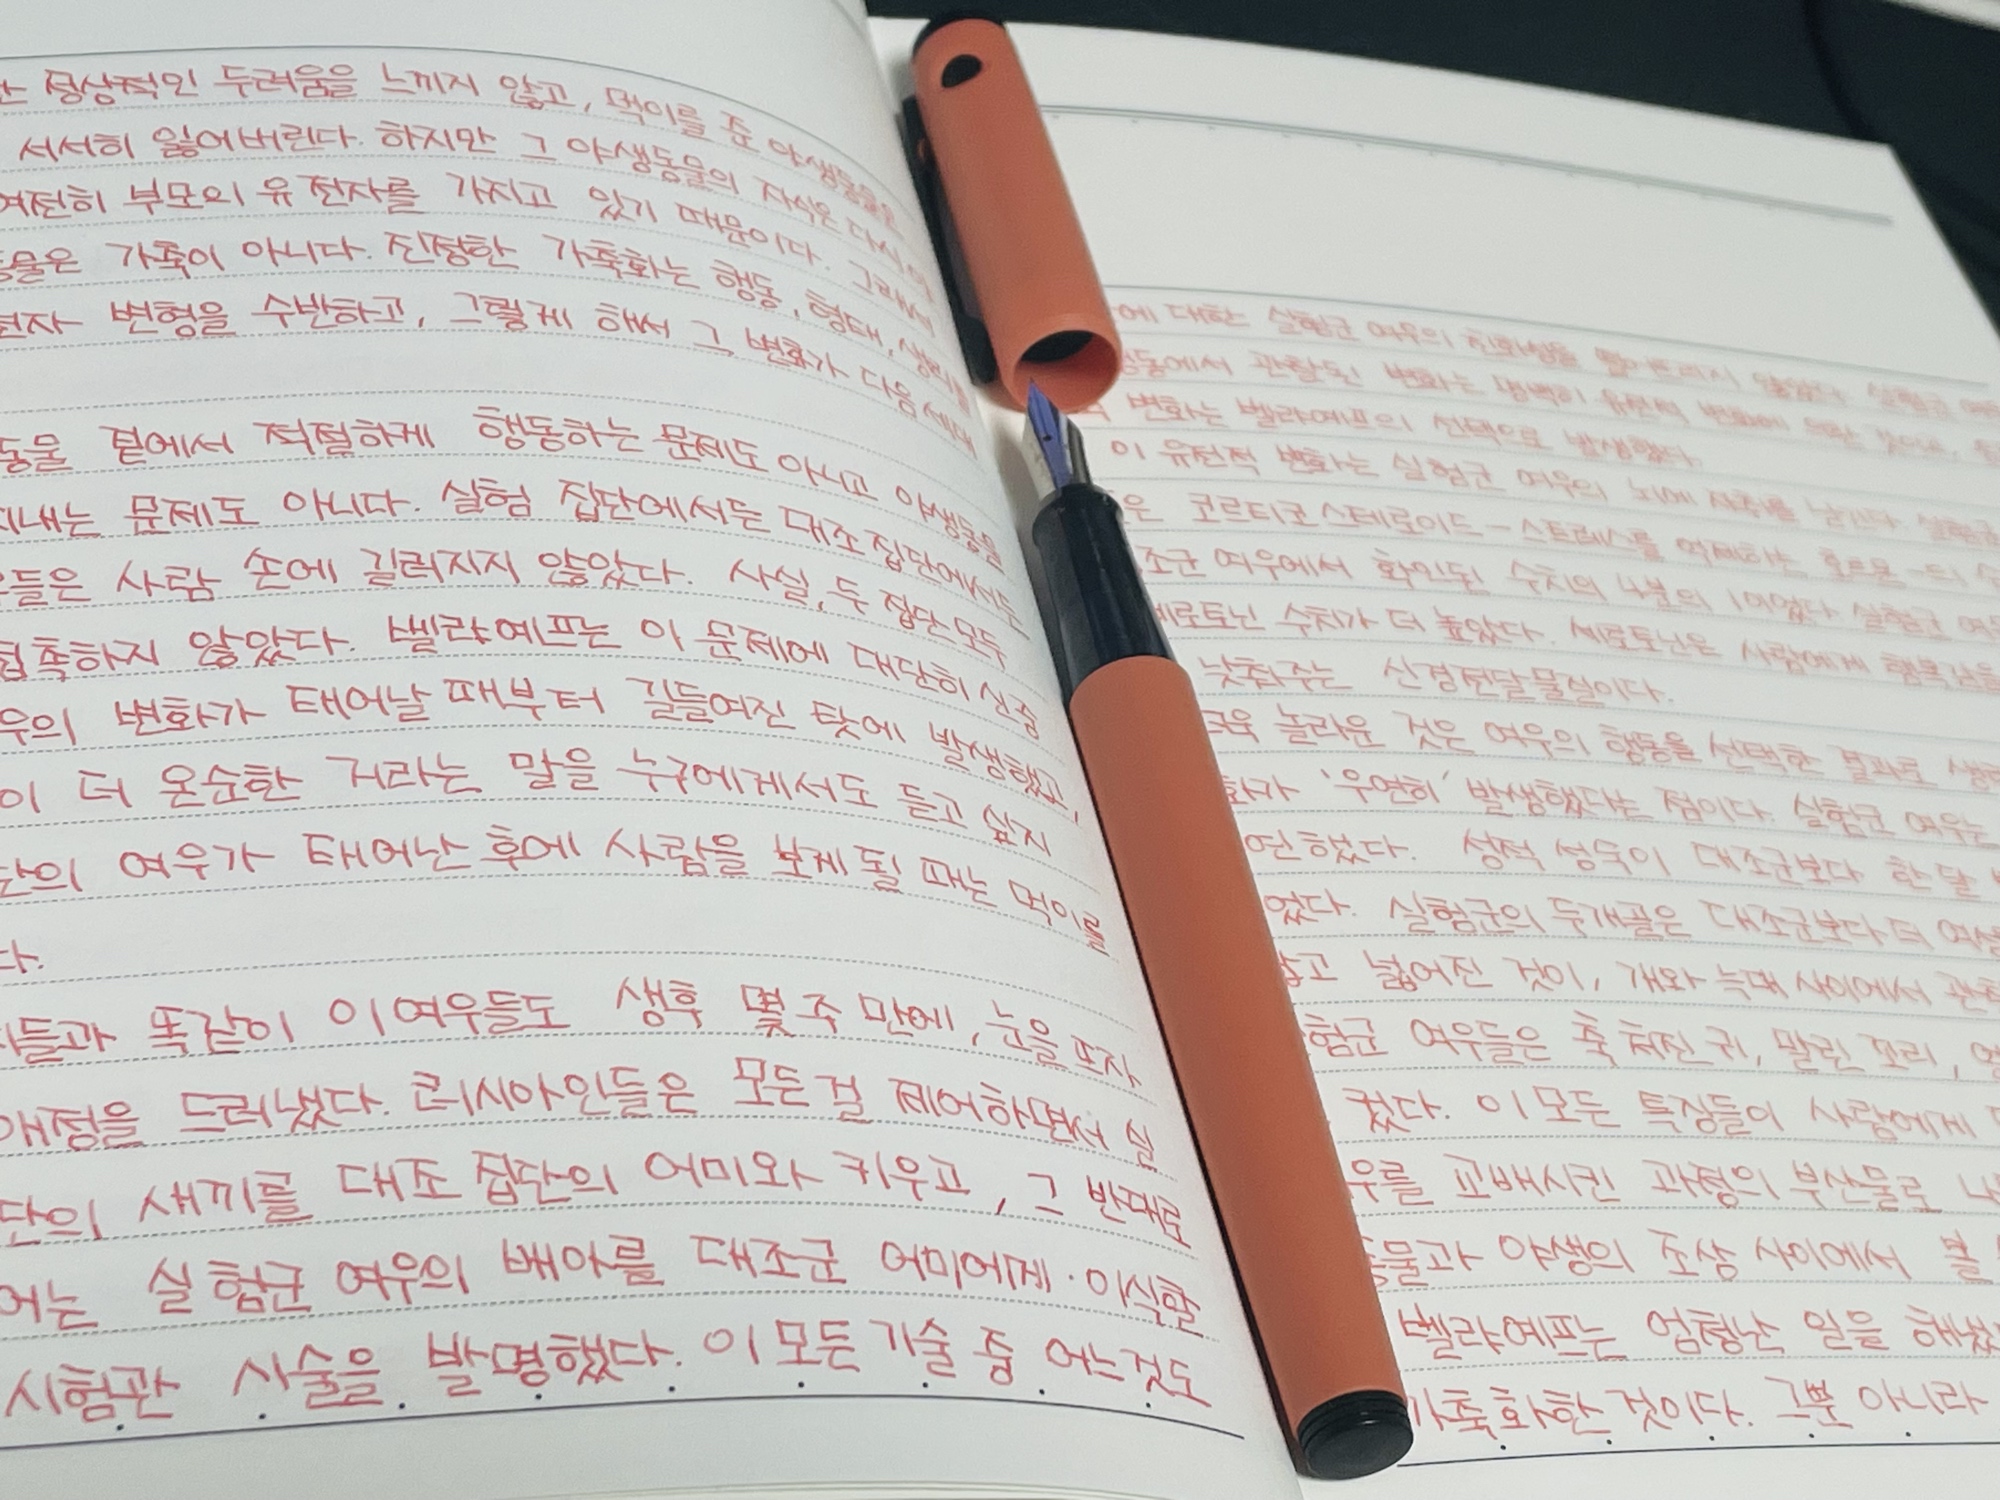 정상적인 두려움을 느끼지 않고, 먹이를 준 야생동물은
서서히 잃어버린다. 하지만 그 야생동물의 자식은 다시
여전히 부모의 유전자를 가지고 있기 때문이다. 그래서
동물은 가축이 아니다. 진정한 가축화는 행동, 형태, 생리를
전자 변형을 수반하고, 그렇게 해서 그 변화가 다음 세대
동물 곁에서 적절하게 행동하는 문제도 아니고 야생동물
지내는 문제도 아니다. 실험 집단에서든 대조집단에서든
들은 사람 손에 길러지지 않았다. 사실, 두 집단 모두
접촉하지 않았다. 벨랴예프는 이 문제에 대단히 신중
우의 변화가 태어날 때부터 길들여진 탓에 발생했고,
이 더 온순한 거라는 말을 누구에게서도 듣고 싶지
단의 여우가 태어난 후에 사람을 보게 될 때는 먹이를
다.
들과 똑같이 이 여우들도 생후 몇 주 만에, 눈을 뜨자
애정을 드러냈다. 러시아인들은 모든걸 제어하면서 실
단의 새끼를 대조 집단의 어미와 키우고, 그 반대로
어는 실험군 여우의 배아를 대조군 어미에게 이식할
시험관 시술을 발명했다. 이 모든 기술 중 어느것도
에 대한 실험군 여우의 친화성을 떨어뜨리지 않았다. 실험군
동에서 관찰된 변화는 명백히 유전적 변화에 의한 것으로,
변화는 벨랴예프의 선택으로 발생했다.
이 유전적 변화는 실험군 여우의 뇌에 자취를 남긴다. 실험군
은 코르티코스테로이드-스트레스를 억제하는 호르몬-의
조군 여우에서 확인된 수치의 4분의 1이었다. 실험군
세로토닌 수치가 더 높았다. 세로토닌은 사람에게 행복감을
낮춰주는 신경전달물질이다.
더욱 놀라운 것은 여우의 행동을 선택한 결과로
화가 '우연히' 발생했다는 점이다. 실험군 여우는
연했다. 성적 성숙이 대조군보다 한 달
었다. 실험군의 두개골은 대조군보다 더
고 넓어진 것이, 개와 늑대 사이에서
험군 여우들은 축 처진 귀, 말린 꼬리,
컸다. 이 모든 특징들이 사람에게
우를 교배시킨 과정의 부산물로
동물과 야생의 조상 사이에서 볼
벨랴예프는 엄청난 일을 해냈
가축화한 것이다. 그뿐 아니라